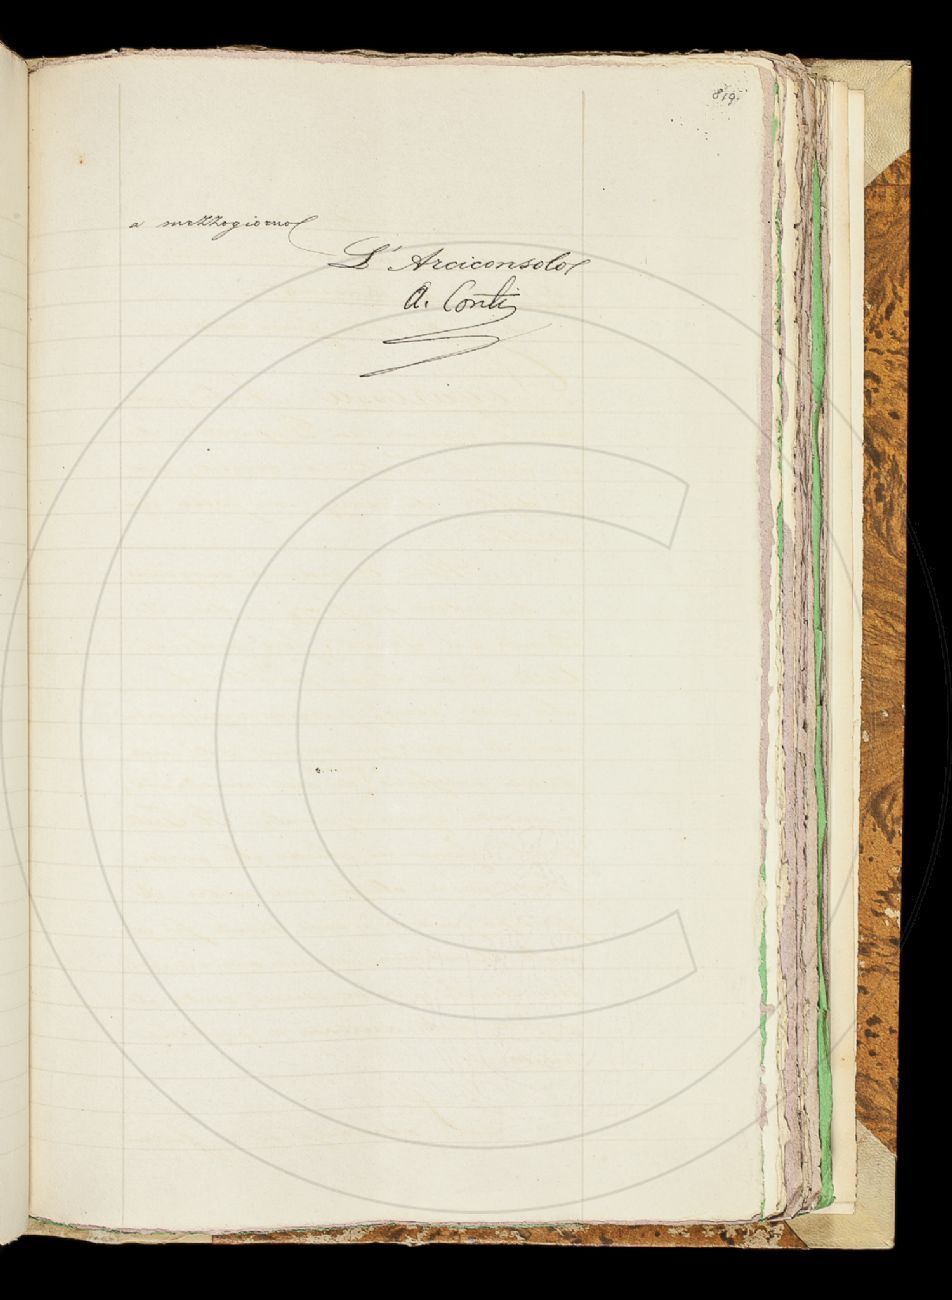 819.
a mezzogiorno
L'Arciconsolo
A. Conti